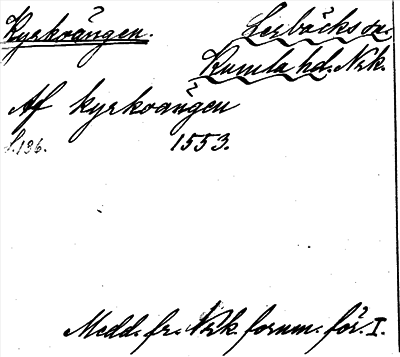 Kyrkoängen. Lerbäcks sn.
Kumla hd. Nrk.
Af kyrkoängen
s. 136. 1553.
Medd. fr. Nrk. fornm. för. I.